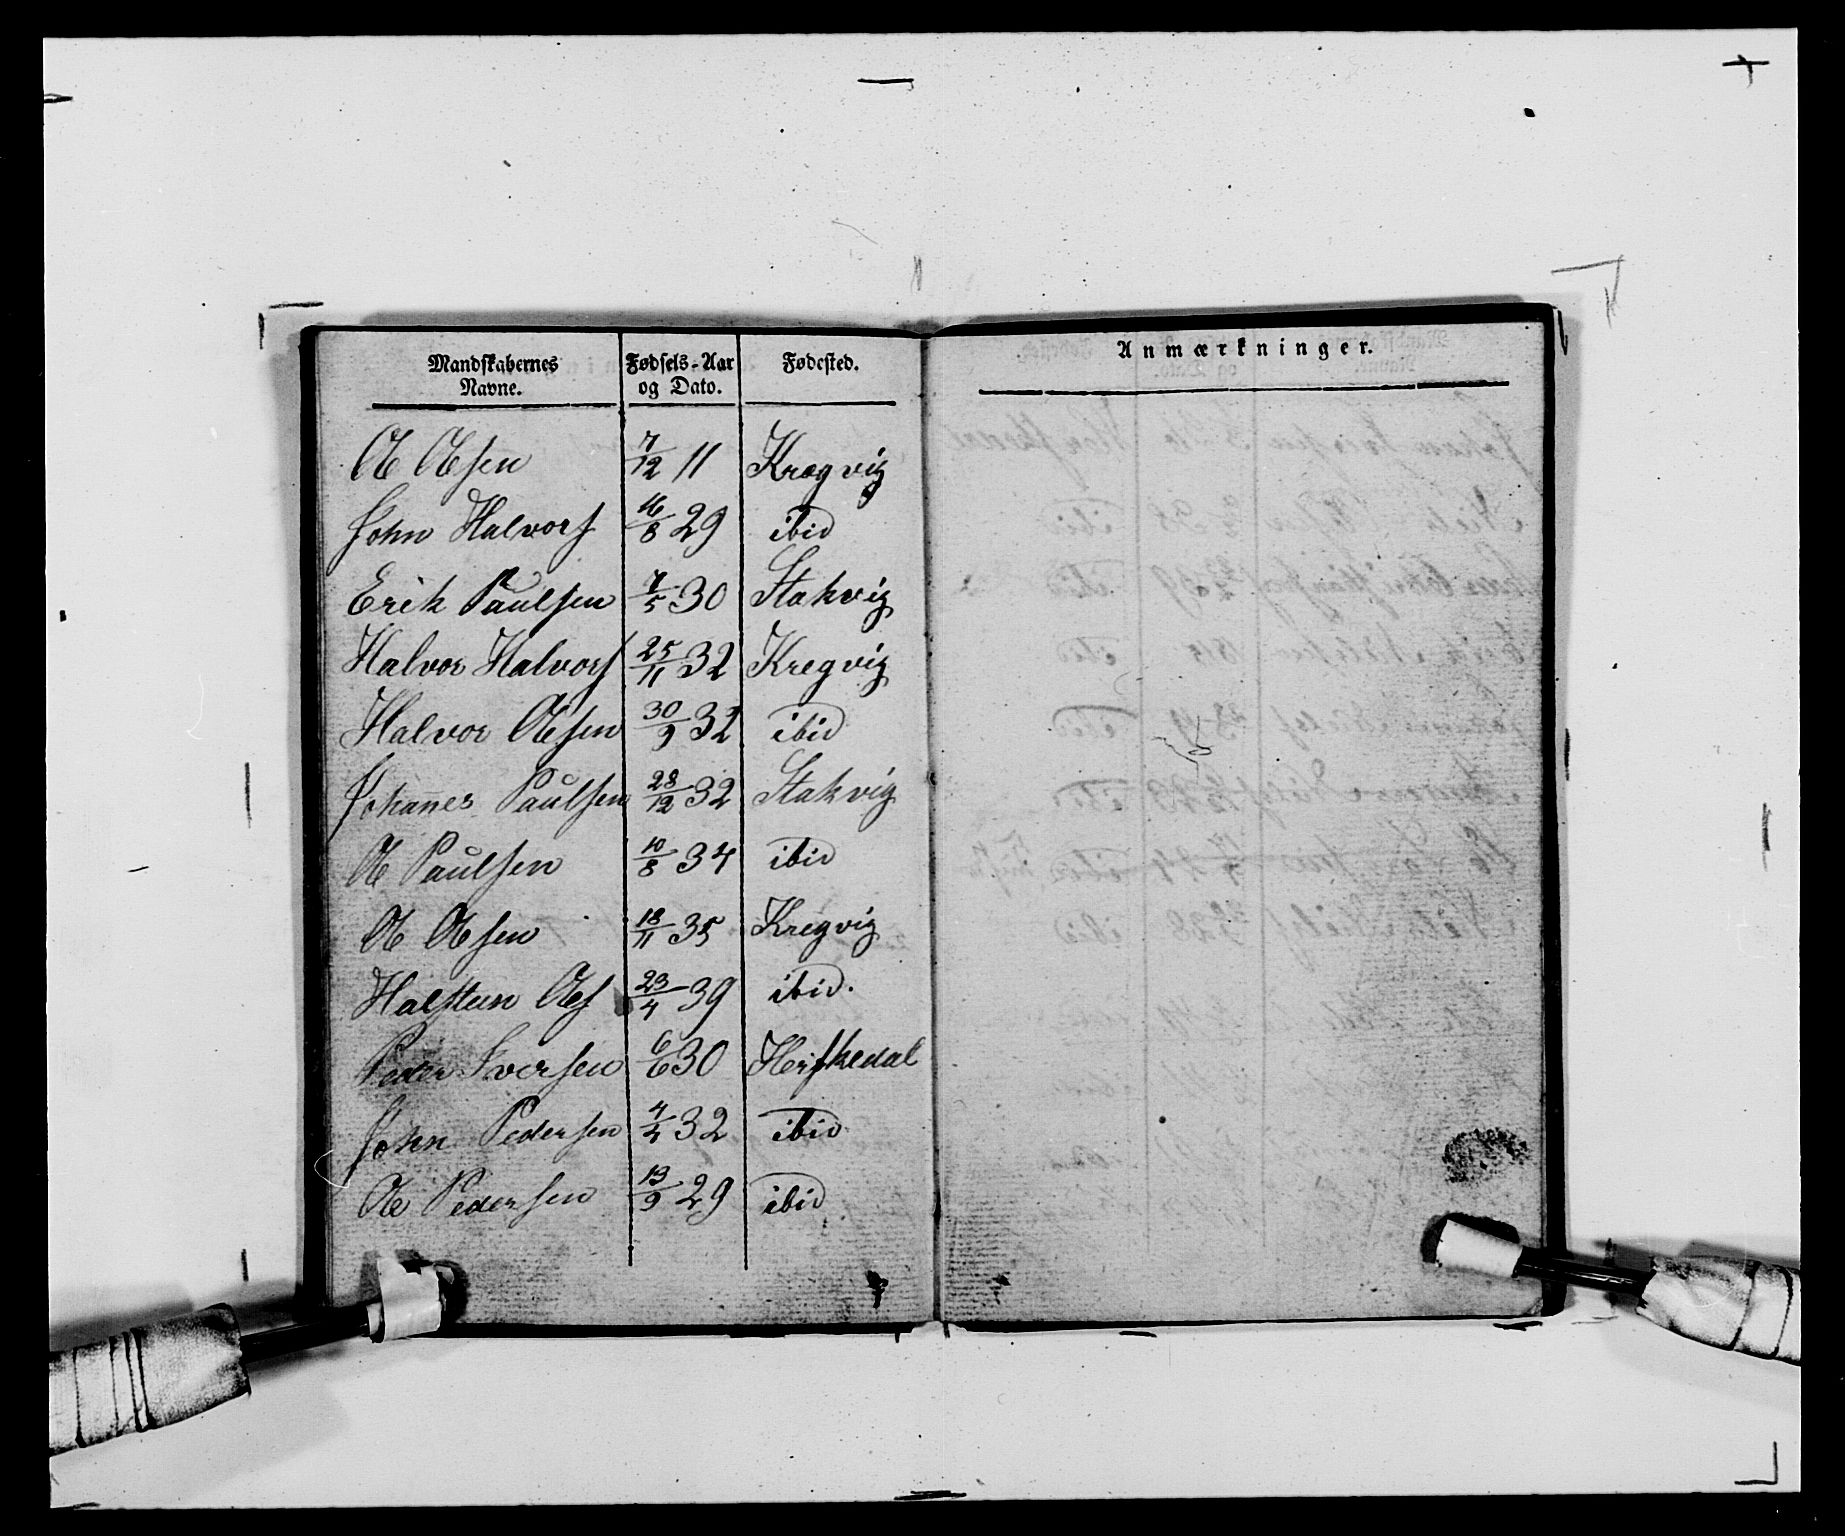 Mandskabernes Navne. Fødsels-Aar og Dato. Fødested.
Ole Olesen 7/12 11 Krægvig
John Halvors 16/8 29 ibid
Erik Paulsen 7/5 30 Stakvig
Halvor Halvors 25/11 32 Kregvig
Halvor Olesen 30/9 32 ibid
Johannes Paulsen 28/12 32 Stakvig
Ole Paulsen 10/8 34 ibid
Ole Olesen 18/11 35 Kregvig
Halsteen Oles 23/4 39 ibid.
Peder Iversen 6/6 30 Herskedal
John Pedersen 4/4 32 ibid
Ole Pedersen 13/9 29 ibid
Anmærkninger.